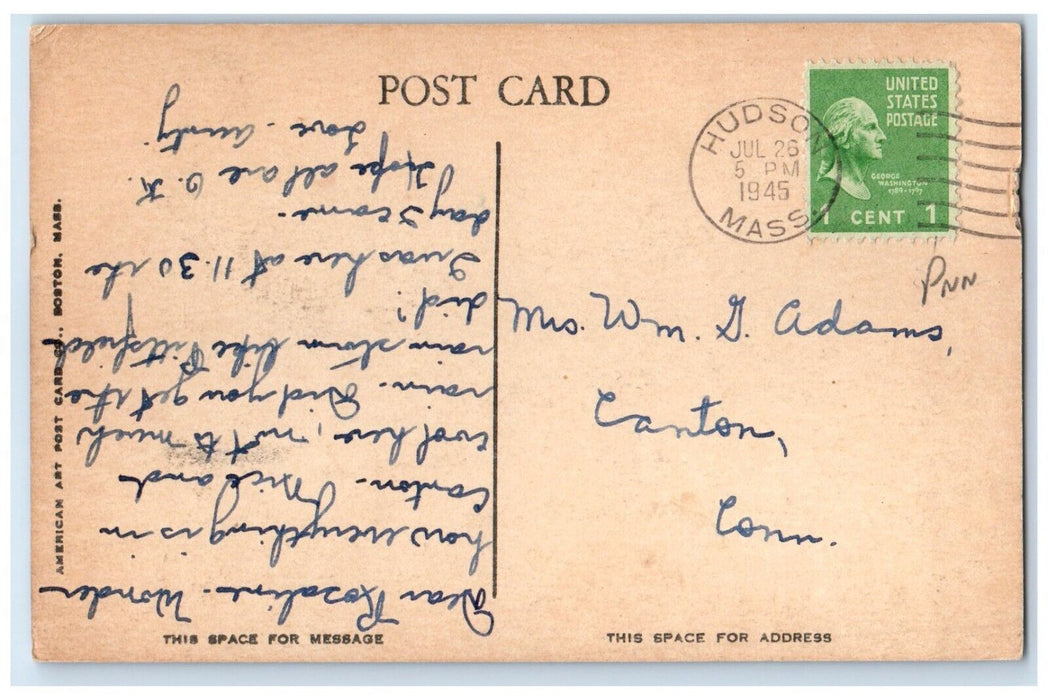 POST CARD
UNITED
STATES
POSTAGE
GEORGE
WASHINGTON
1789-1797
1 CENT 1
HUDSON
JUL 26
5 PM
1945
MASS.
PNN
Mrs. Wm. G. Adams,
Canton,
Conn.
Dear Rosaline - Wonder
how everything is in
Canton - Nice and
cool here, not to much
rain. Did you get the
rain storm like Pittsfield
did?
I was here at 11:30 the
day I came.
Hope all are O.K.
Love - Aunty
AMERICAN ART POST CARD CO., BOSTON, MASS.
THIS SPACE FOR MESSAGE
THIS SPACE FOR ADDRESS